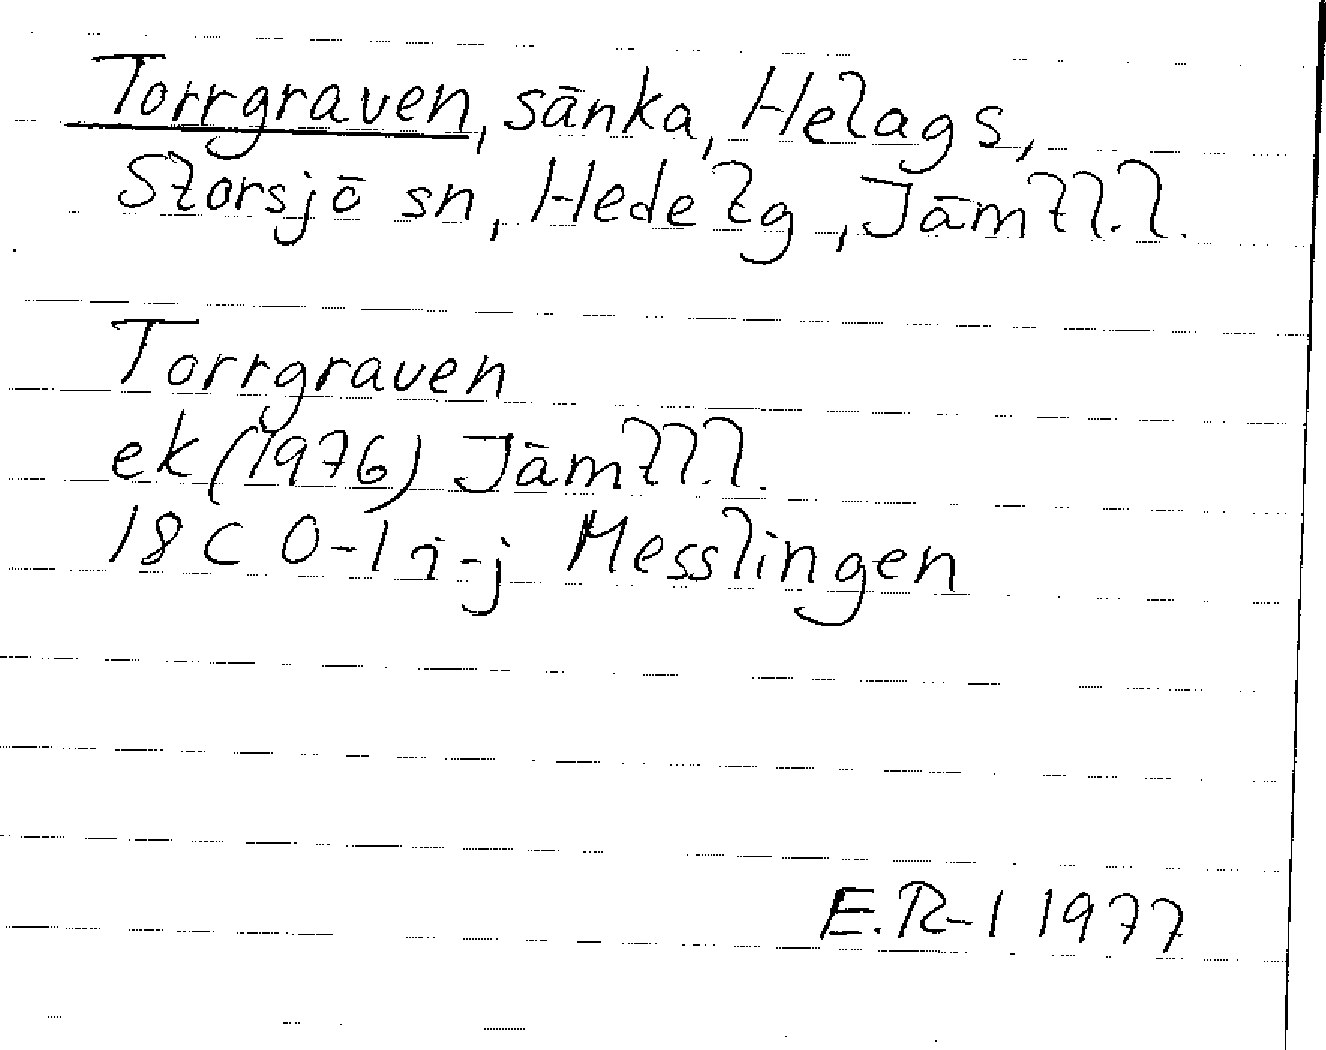 Torrgraven, sänka, Helags,
Storsjö sn, Hede tg, Jämtl.l.
Torrgraven
ek (1976) Jämtl.l.
18C 0-1 i-j Messlingen
E.R-l 1977